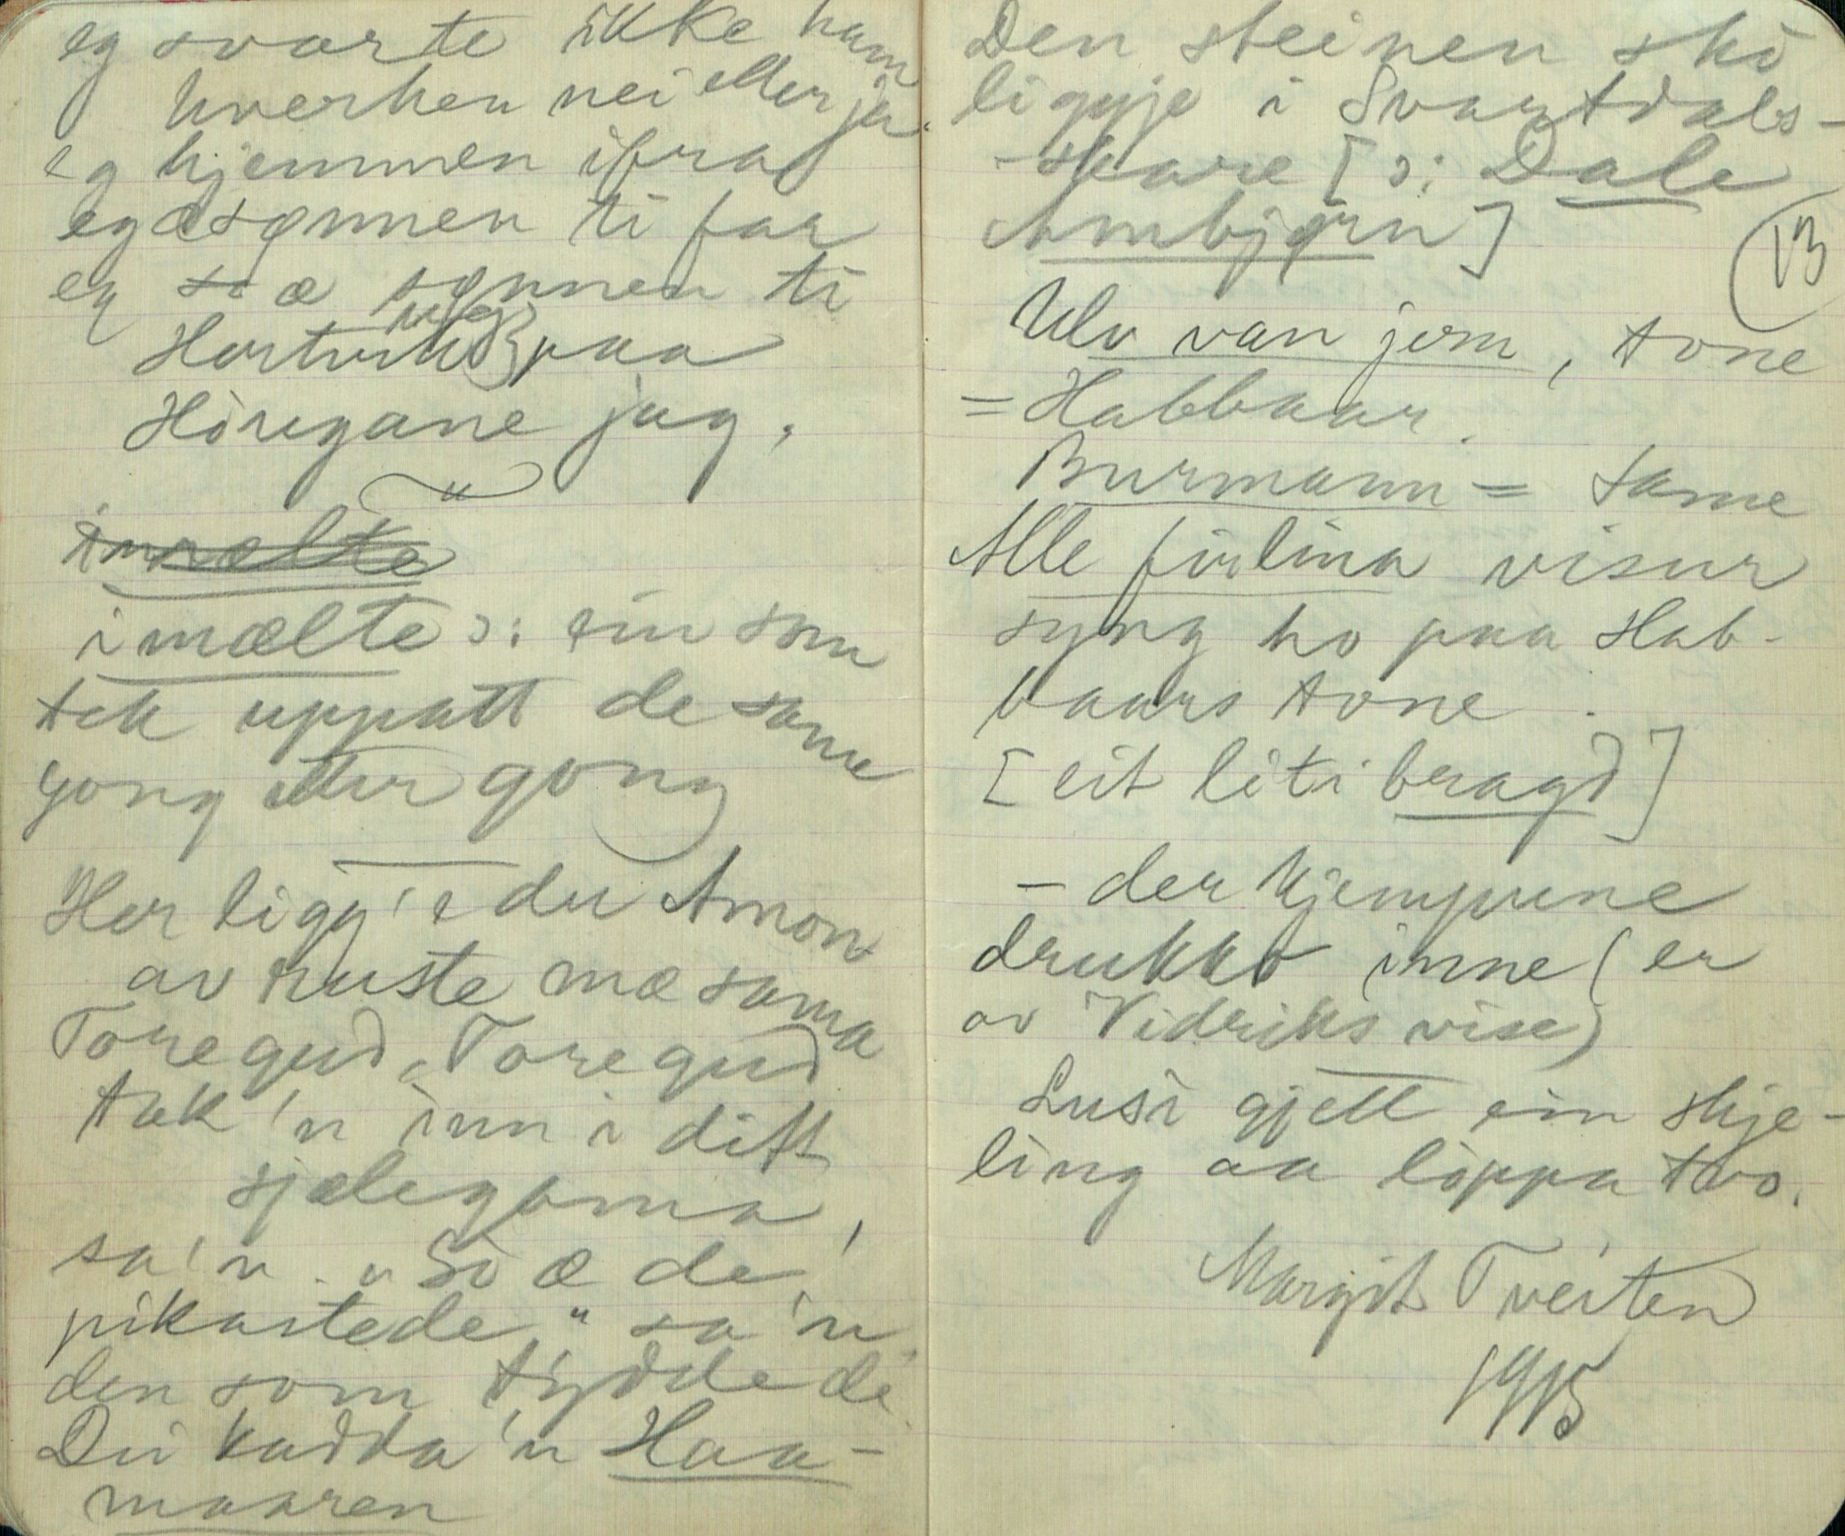 eg svarte ikke ham
hverken nei eller ja.
eg hjemmen ifra
eg æ sønnen ti far
eg so æ sønnen ti
Hertug paa
Höregane jag.
imælte
imælte ɔ: ein som
tek uppatt de same
gong etter gong
Her ligg 'e du Amon
av ruste mæ sama
Toregud, Toregud
tak 'n inn i ditt
sjælegama,
sa 'n. „So æ de
pikastede" sa 'n
den som tydde de
Dei kadda 'n Haa-
maaren
Den steinen sko
liggje i Svartdals-
-skare [ɔ: Dale
Ambjørn]
13
Ulv van jern, tone
= Habbaar.
Burmann = same
Alle firlina visur
syng ho paa Hab-
baars tone.
[eit liti bragd]
- der kjempune
drukko inne (er
av Vidriks vise)
Lusi gjett ein skje-
ling aa loppa tvo.
Margit Tveiten
1915